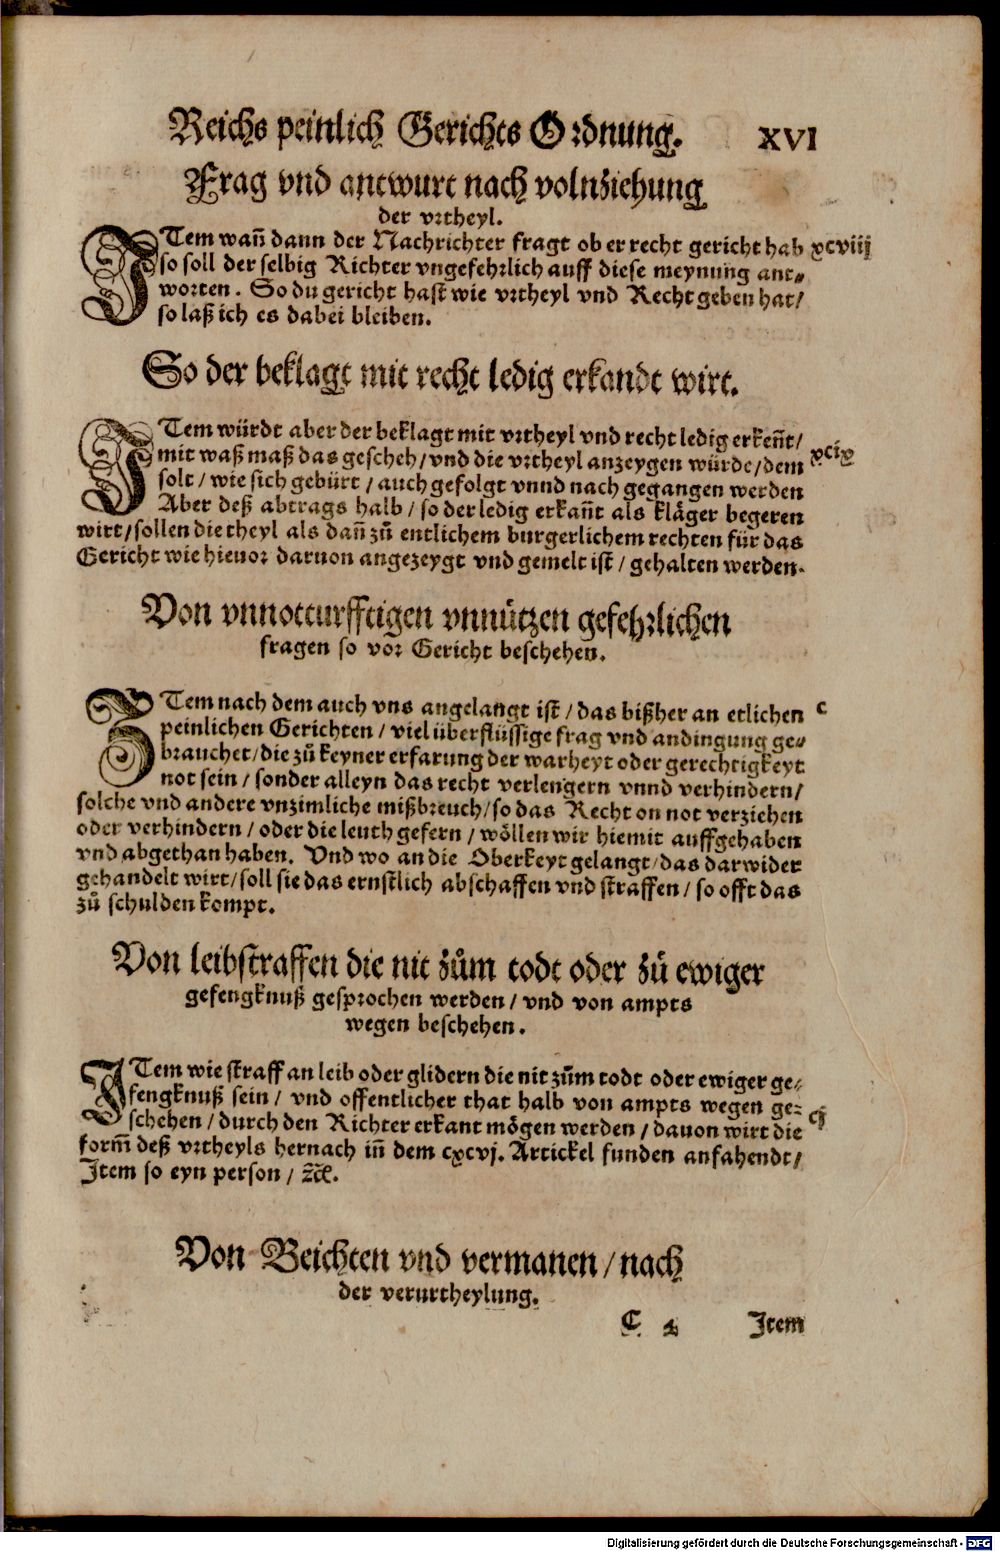 Reichs peinlich Gerichts Ordnung. XVI
Frag vnd antwurt nach volnziehung
der vrtheyl.
ITem wañ dann der Nachrichter fragt ob er recht gericht hab xcviij
so soll der selbig Richter vngefehrlich auff diese meynung ant-
worten. So du gericht hast wie vrtheyl vnd Recht geben hat/
so laß ich es dabei bleiben.
So der beklagt mit recht ledig erkandt wirt.
ITem würdt aber der beklagt mit vrtheyl vnd recht ledig erkeñt/
mit waß maß das gescheh/vnd die vrtheyl anzeygen würde/dem xcix
solt/wie sich gebürt/auch gefolgt vnnd nach gegangen werden
Aber deß abtrags halb/so der ledig erkañt als kläger begeren
wirt/sollen die theyl als dañ zů entlichem burgerlichem rechten für das
Gericht wie hieuor daruon angezeygt vnd gemelt ist/gehalten werden.
Von vnnotturfftigen vnnützen gefehrlichen
fragen so vor Gericht beschehen.
ITem nach dem auch vns angelangt ist/das bißher an etlichen c
peinlichen Gerichten/viel überflüssige frag vnd andingung ge-
brauchet/die zů keyner erfarung der warheyt oder gerechtigkeyt
not sein/sonder alleyn das recht verlengern vnnd verhindern/
solche vnd andere vnzimliche mißbreuch/so das Recht on not verziehen
oder verhindern/oder die leuth gefern/wöllen wir hiemit auffgehaben
vnd abgethan haben. Vnd wo an die Oberkeyt gelangt/das darwider
gehandelt wirt/soll sie das ernstlich abschaffen vnd straffen/so offt das
zů schulden kompt.
Von leibstraffen die nit zům todt oder zů ewiger
gefengknuß gesprochen werden/vnd von ampts
wegen beschehen.
ITem wie straff an leib oder glidern die nit zům todt oder ewiger ge-
fengknuß sein/vnd offentlicher that halb von ampts wegen ge-
schehen/durch den Richter erkant mögen werden/dauon wirt die cj
form̃ deß vrtheyls hernach iñ dem cxcvj. Artickel funden anfahendt/
Item so eyn person/ꝛc̃.
Von Beichten vnd vermanen/nach
der verurtheylung.
C 4 Item
Digitalisierung gefördert durch die Deutsche Forschungsgemeinschaft - DFG